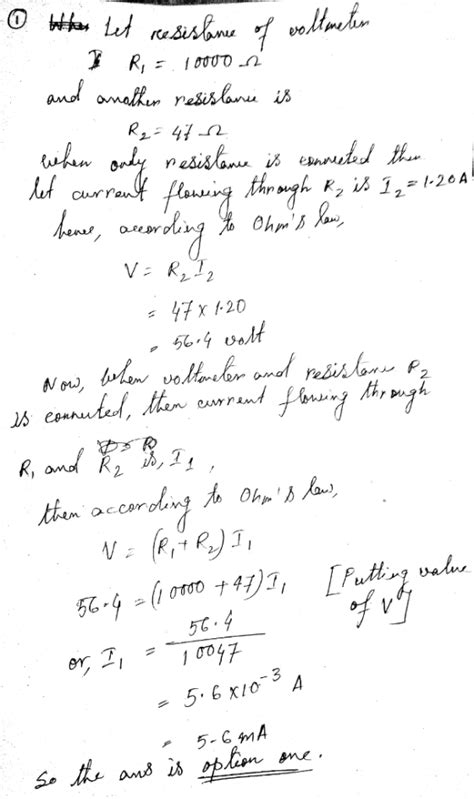 ① Let resistance of voltmeter
R₁ = 10000 Ω
and another resistance is
R₂ = 47 Ω
when only resistance is connected then
let current flowing through R₂ is I₂ = 1.20 A
hence, according to Ohm's law,
V = R₂I₂
= 47 x 1.20
= 56.4 volt
Now, when voltmeter and resistance R₂
is connected, then current flowing through
R₁ and R₂ is, I₁,
then according to Ohm's law,
V = (R₁ + R₂) I₁
56.4 = (10000 + 47) I₁ [Putting value of V]
or, I₁ = 56.4 / 10047
= 5.6 x 10⁻³ A
= 5.6 mA
So the ans is option one.